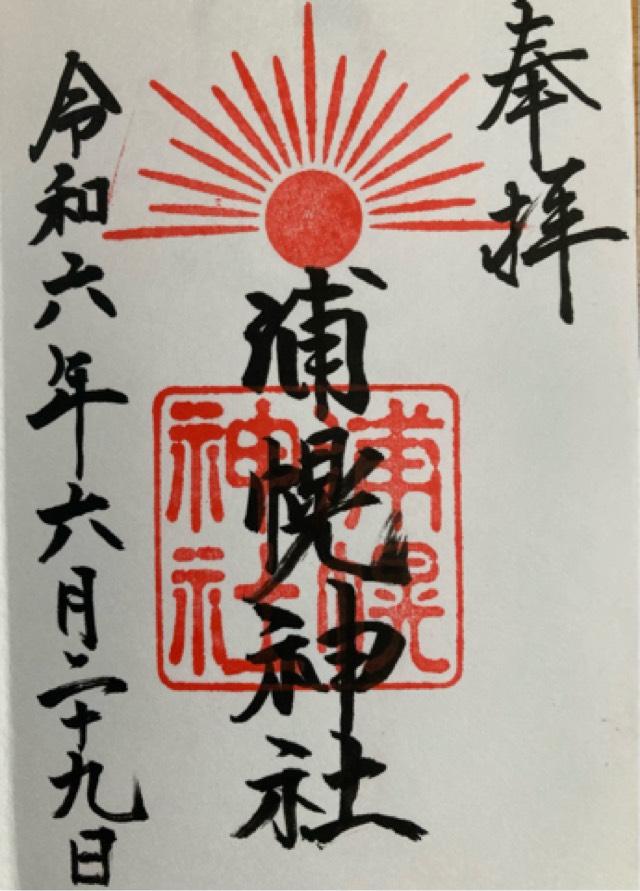 奉拝
浦幌神社
浦幌
神社
令和六年六月二十九日